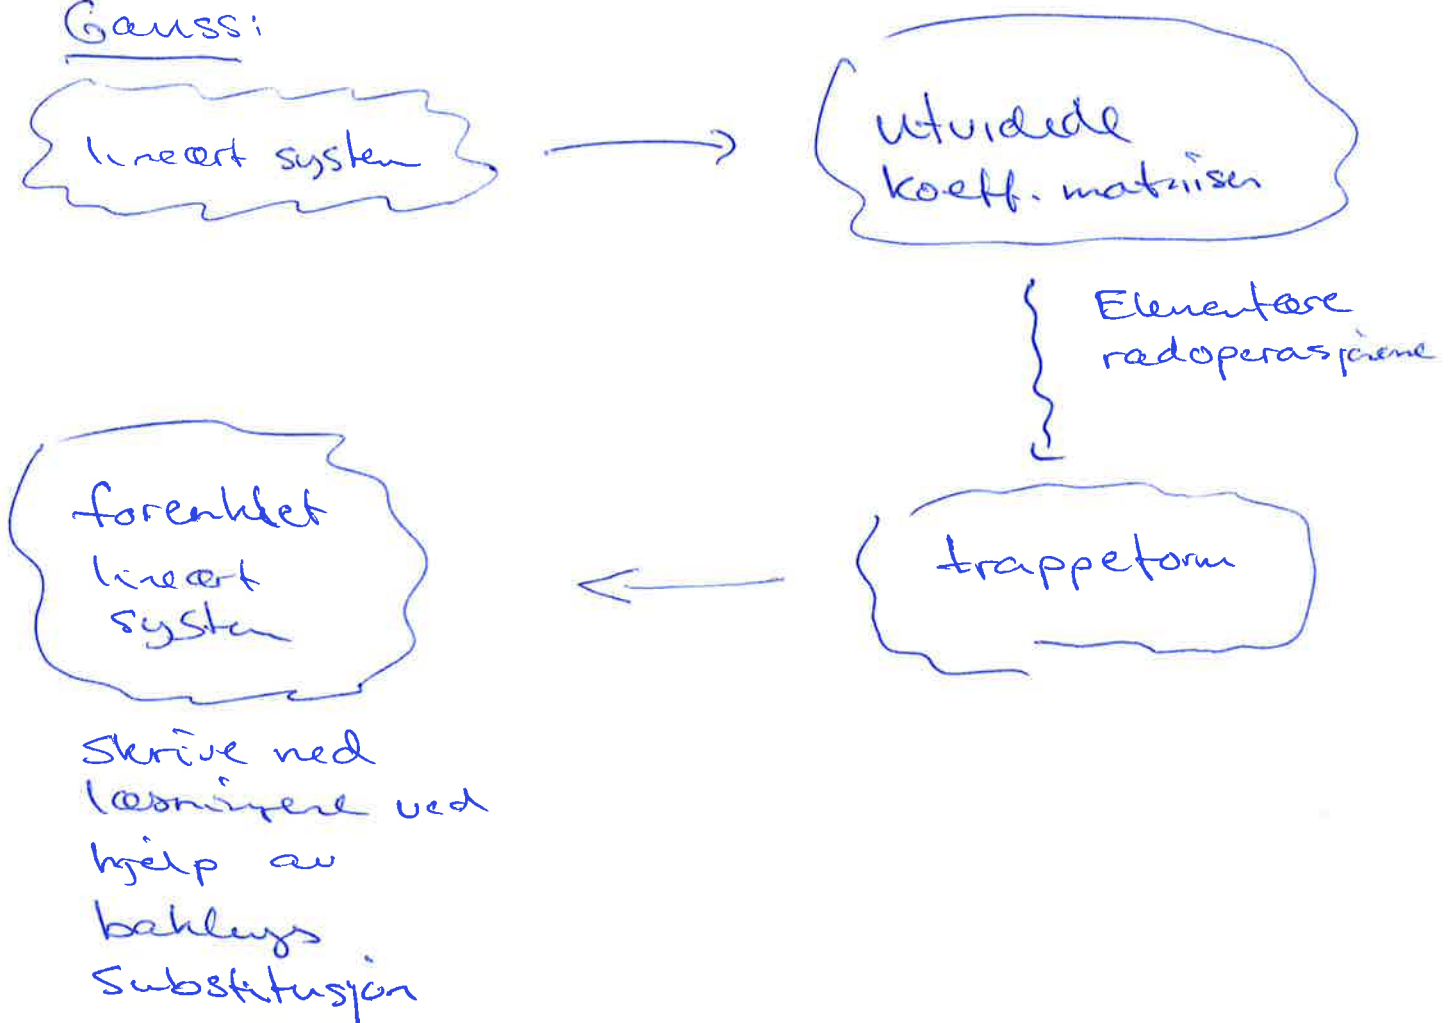 Gauss:
lineært system
utvidede
koeff. matrisen
Elementære
radoperasjonene
trappeform
forenklet
lineært
system
skrive ned
løsningene ved
hjelp av
baklengs
substitusjon